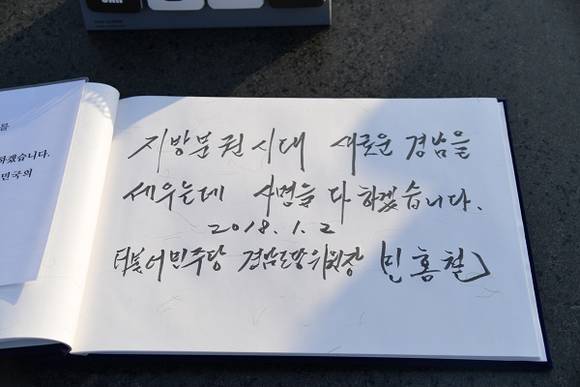 를
하겠습니다.
민국의
지방분권시대 새로운 경남을
세우는데 사명을 다 하겠습니다.
2018. 1. 2
더불어민주당 경남도당위원장 민홍철